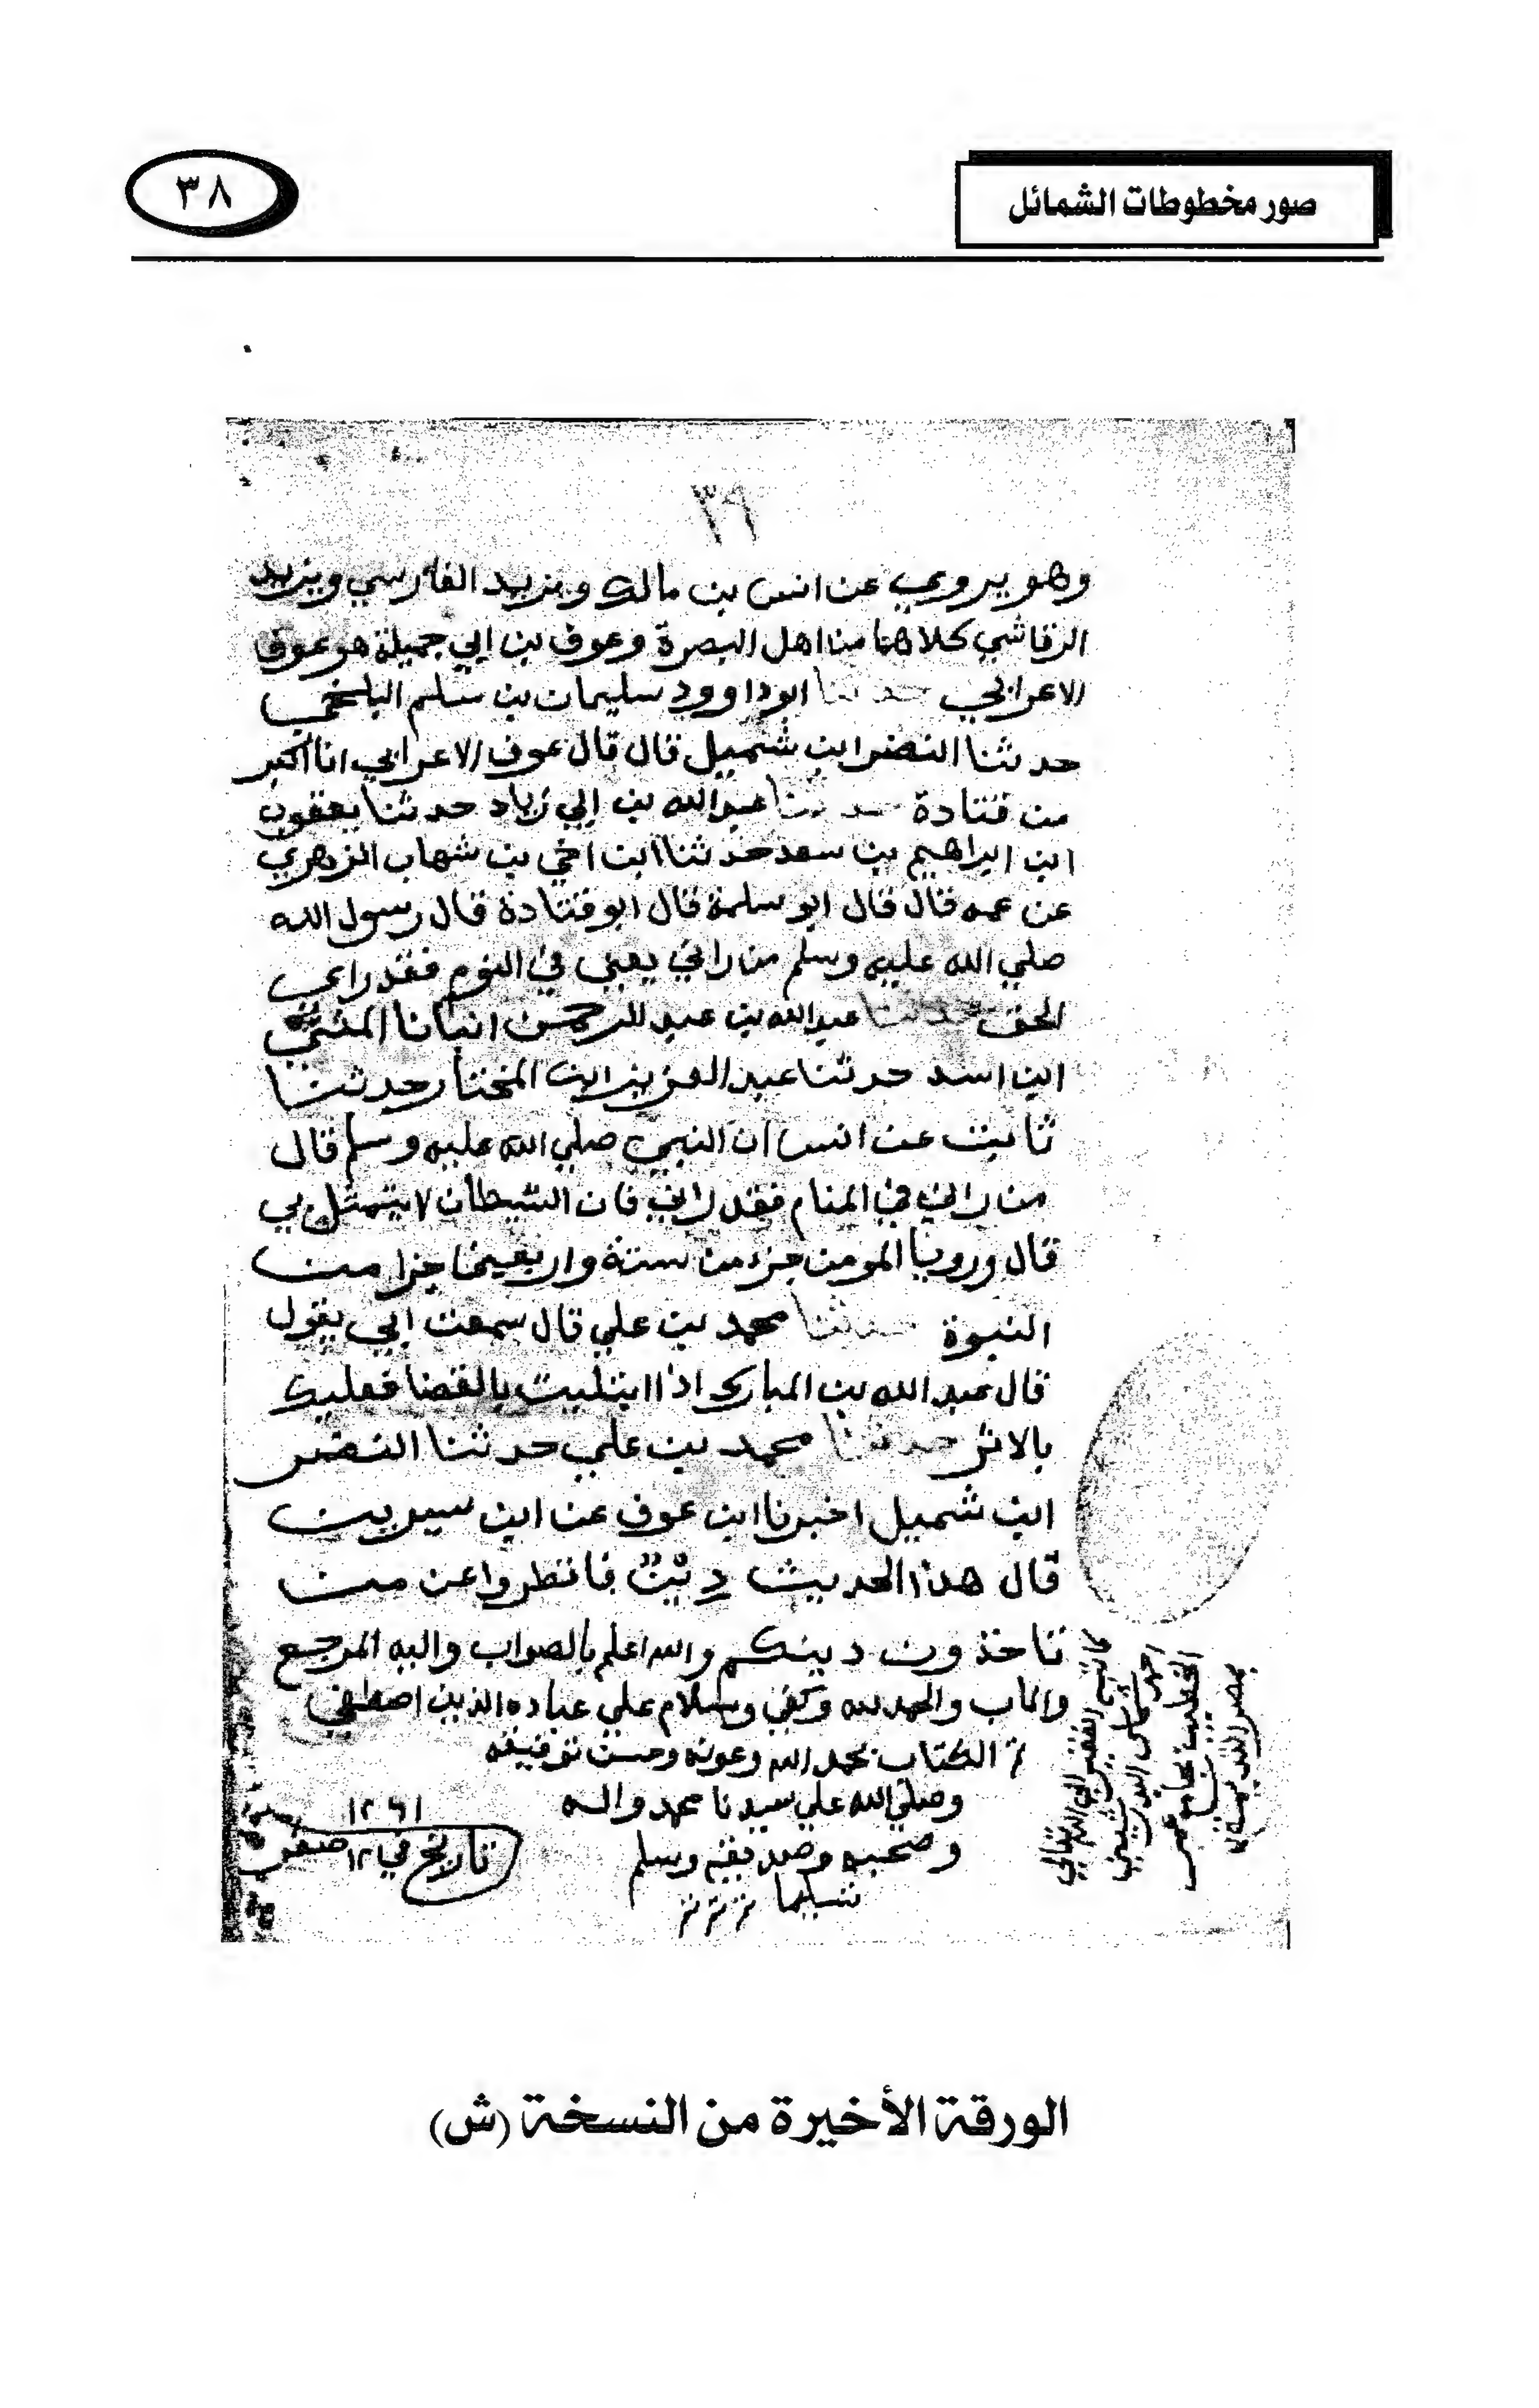 صور مخطوطات الشمائل
٣٨
٣٩
وهو يروي عن انس بن مالك ويزيد الفارسي ويزيد
الرقاشي كلاهما من اهل البصرة وعوف بن ابي جميلة هو عوف
الاعرابي حدثنا ابو داوود سليمان بن سلم البلخي
حدثنا النضر ابن شميل قال قال عوف الاعرابي انا اكبر
من قتادة حدثنا عبد الله بن ابي زياد حدثنا يعقوب
ابن ابراهيم بن سعد حدثنا ابن اخي بن شهاب الزهري
عن عمه قال قال ابو سلمة قال ابو قتادة قال رسول الله
صلي الله عليه وسلم من راني يعني في النوم فقد راي
الحق حدثنا عبد الله بن عبد الرحمن انبانا المثني
ابن اسد حدثنا عبد العزيز ابن المختار حدثنا
ثابت عن انس ان النبي صلي الله عليه وسلم قال
من راني في المنام فقد راني فان الشيطان لا يتمثل بي
قال ورويا المومن جزء من ستة واربعين جزا من
النبوة حدثنا محمد بن علي قال سمعت ابي يقول
قال عبد الله بن المبارك اذا ابتليت بالقضا فعليك
بالاثر حدثنا محمد بن علي حدثنا النضر
ابن شميل اخبرنا ابن عوف عن ابن سيرين
قال هذا الحديث دين فانظروا عن من
تاخذون دينكم والله اعلم بالصواب واليه المرجع
والماب والحمد لله وكفي وسلام علي عباده الذين اصطفي
تم الكتاب بحمد الله وعونه وحسن توفيقه
وصلي الله علي سيدنا محمد واله
وصحبه وسلم
تسليما
تاريخ في ١٢ صفر
١٢٦١
كاتبه الفقير الي الله تعالي
الخطيب بجامع
الورقة الأخيرة من النسخة (ش)